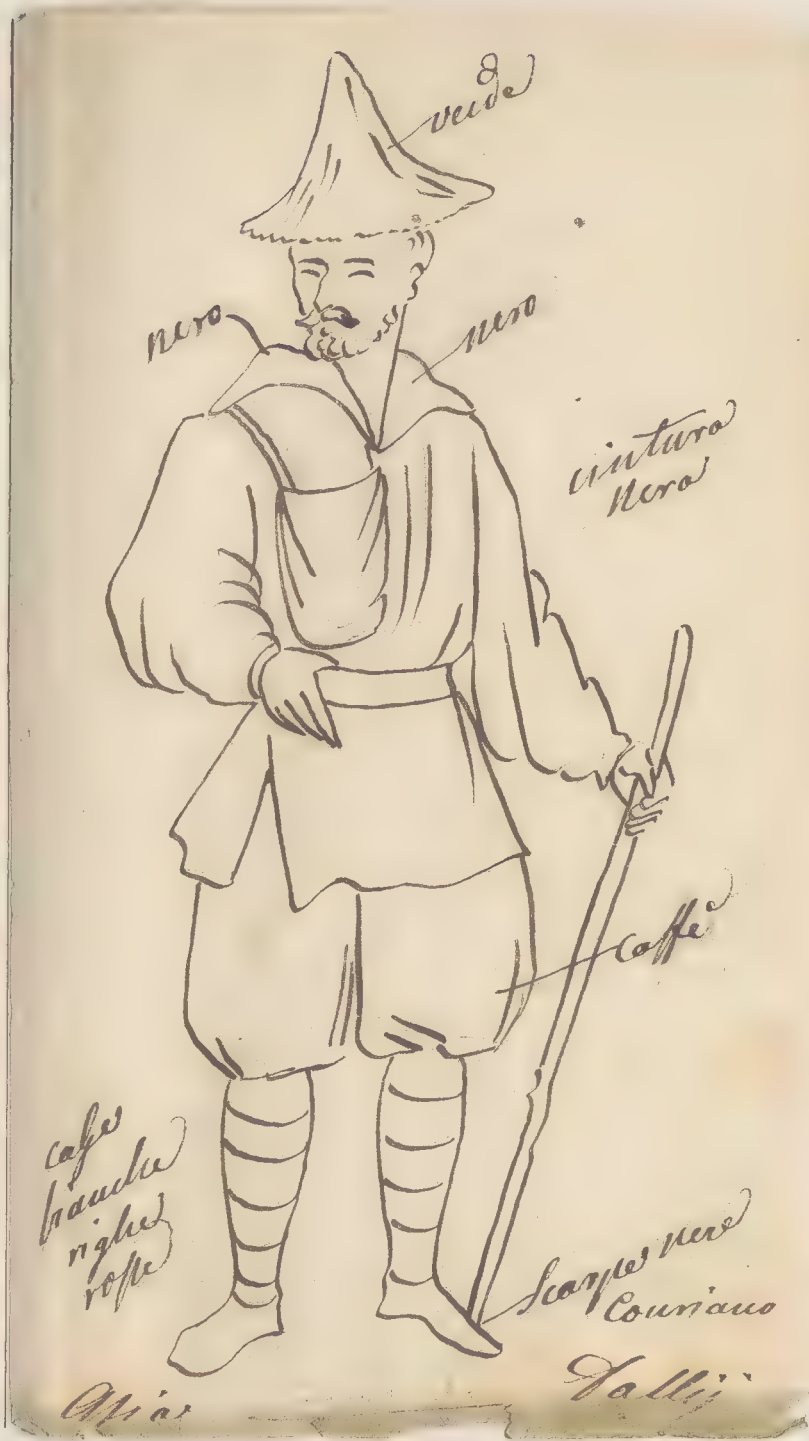 verde
nero
nero
cintura
nera
caffè
calze
bianche
righe
rosse
Scarpe nere
Couriano
Asia